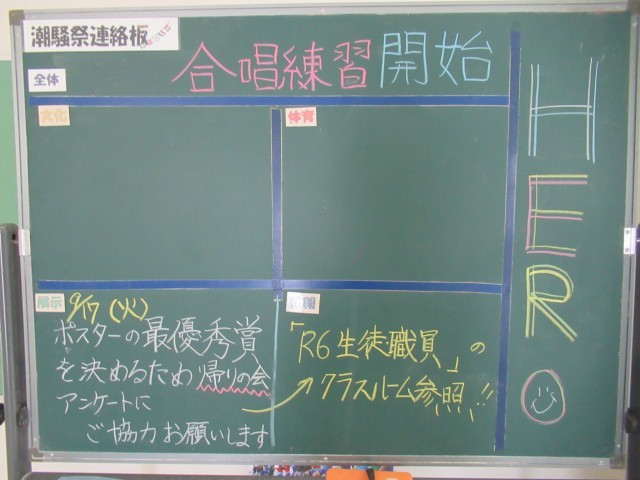 潮騒祭連絡板
全体
合唱練習開始
文化
体育
展示
9/17(火)
ポスターの最優秀賞
を決めるため帰りの会
アンケートに
ご協力お願いします
「R6生徒・職員」の
クラスルーム参照!!
HERO